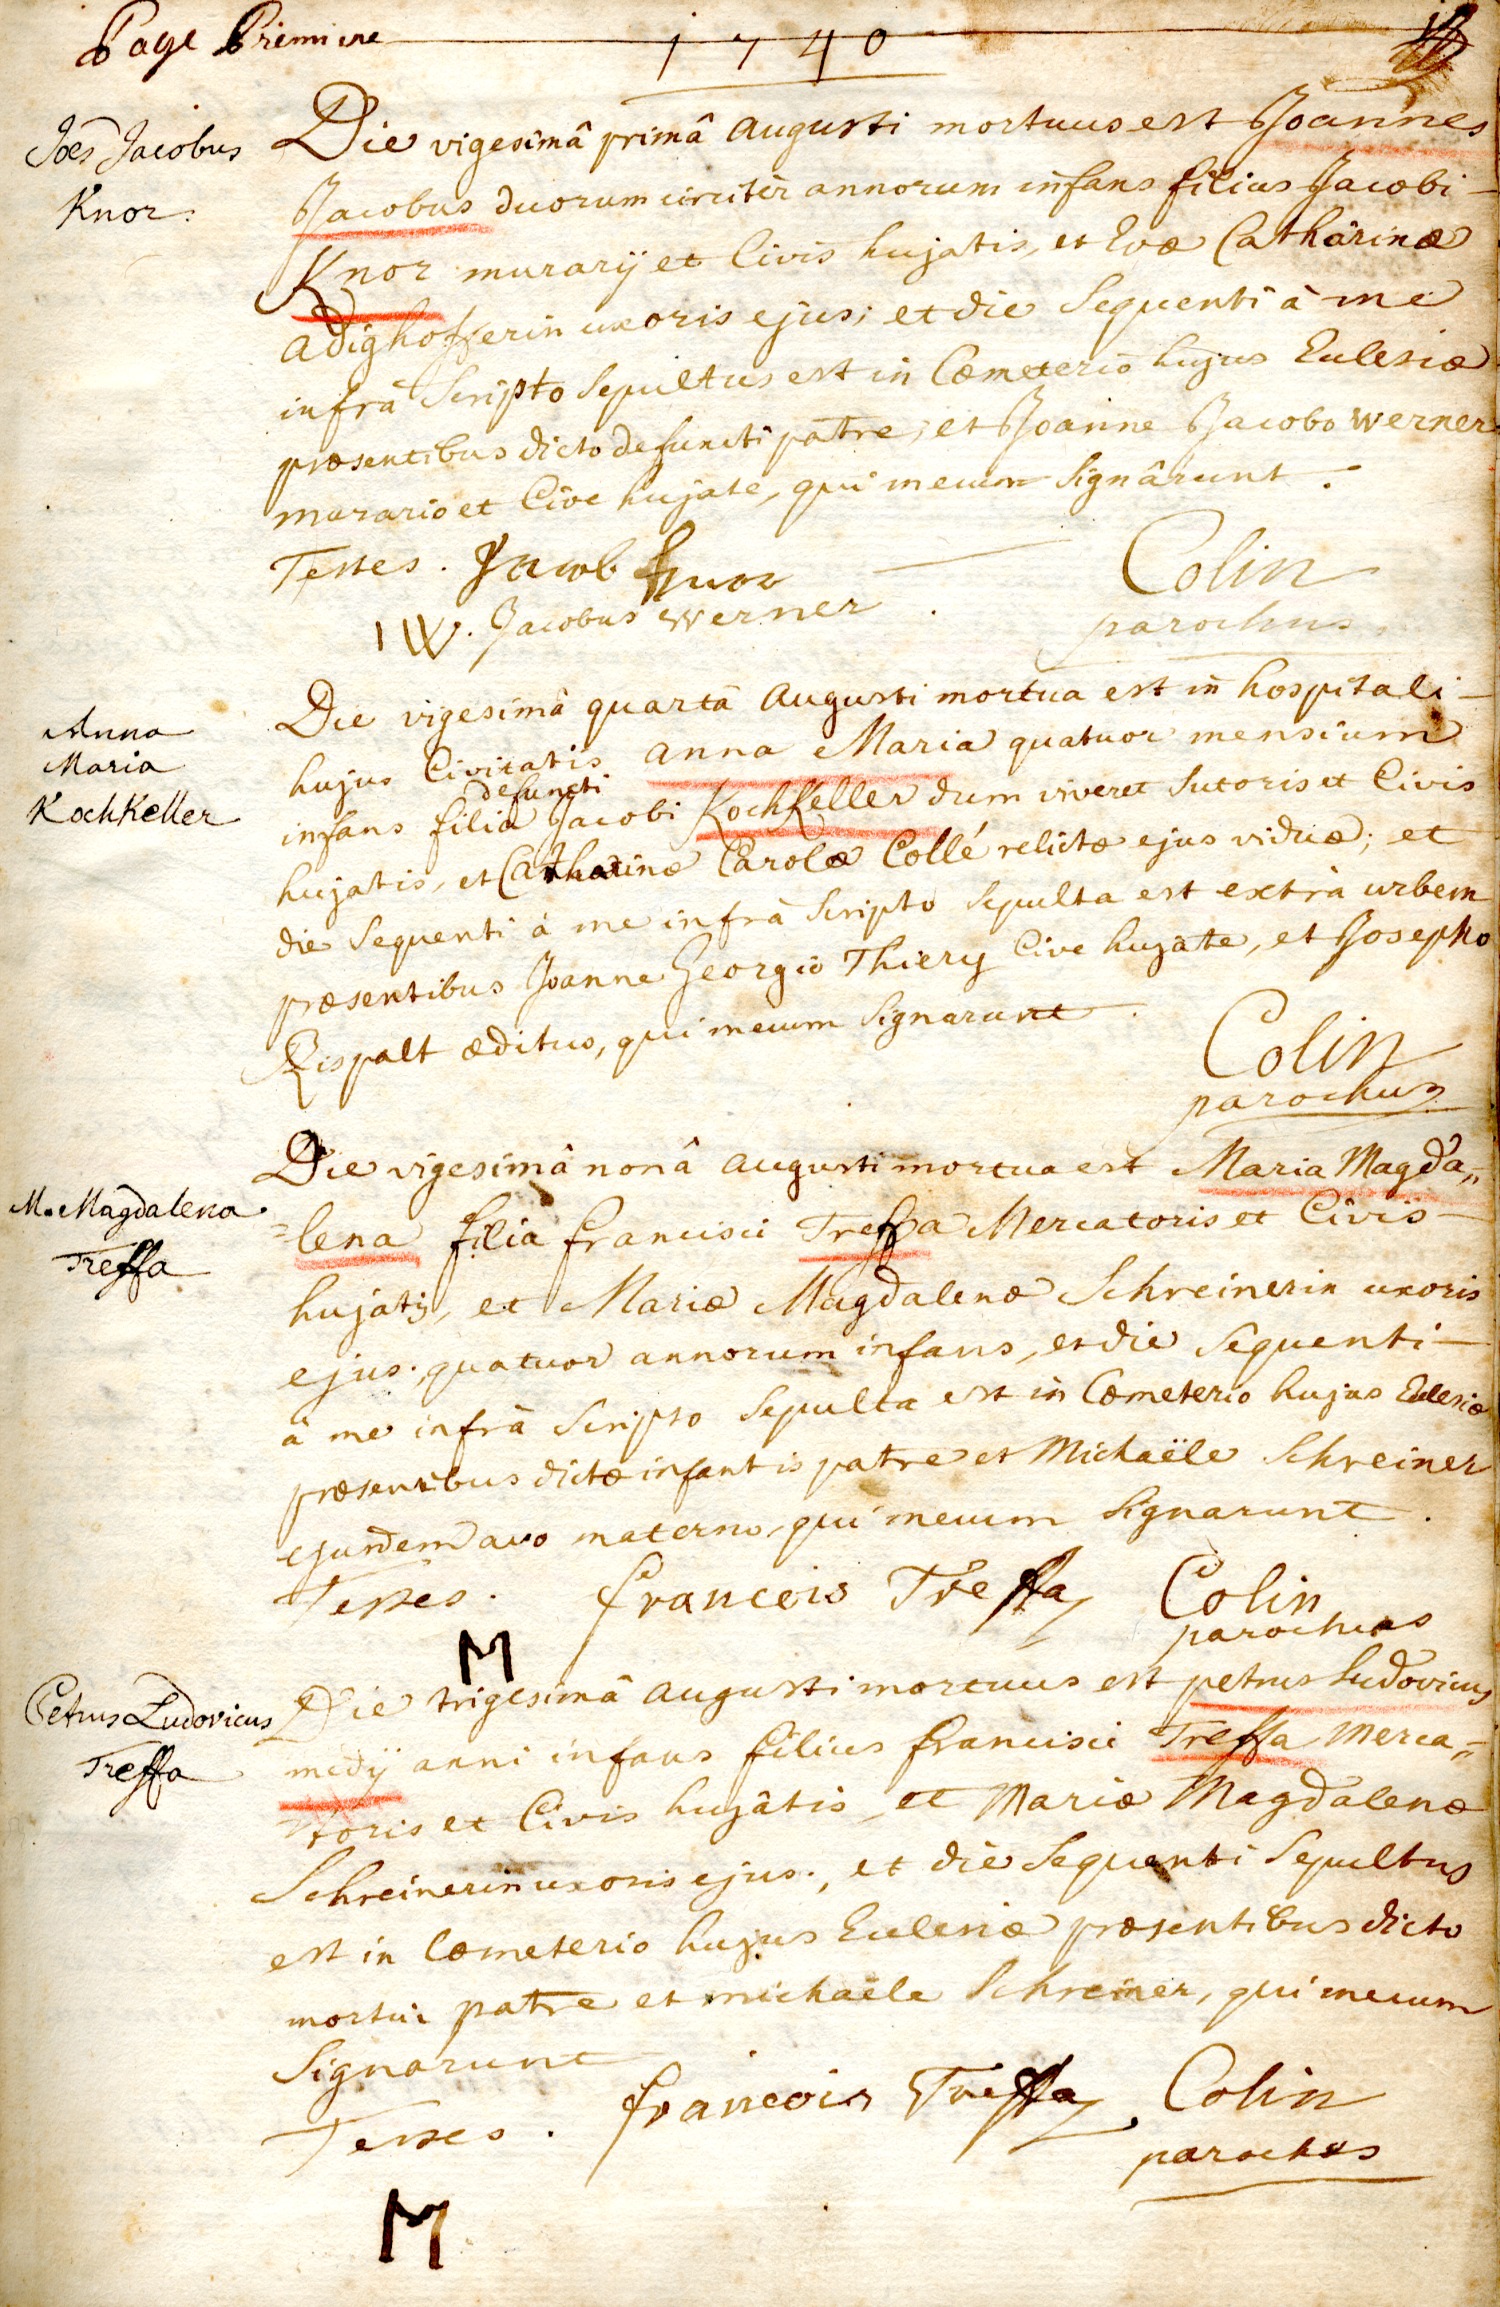 Page Premiere
1740
Joes Jacobus
Knor.
Die vigesimâ primâ augusti mortuus est Joannes
Jacobus duorum circiter annorum infans filius Jacobi
Knor murarij et Civis hujatis, et Evæ Catharinæ
adighofferin uxoris ejus; et die sequenti à me
infrà scripto sepultus est in Cœmeterio hujus Ecclesiæ
præsentibus dicto defuncti patre, et Joanne Jacobo Werner
murario et Cive hujate, qui mecum signârunt.
Testes. Jacob Knor
Colin
IW. Jacobus Werner.
parochus.
Anna
Maria
KochKeller
Die vigesimâ quartâ augusti mortua est in hospitali
hujus Civitatis anna Maria quatuor mensium
defuncti
infans filia Jacobi KochKeller dum viveret sutoris et Civis
hujatis, et Catharinæ Carolæ Collé relictæ ejus viduæ; et
die sequenti à me infrà scripto sepulta est extrà urbem
præsentibus Joanne Georgio Thiery Cive hujate, et Josepho
Rispalt ædituo, qui mecum signarunt.
Colin
parochus
M. Magdalena
Treffa
Die vigesimâ nonâ augusti mortua est Maria Magda„
=lena filia francisci Treffa Mercatoris et Civis
hujatis, et Mariæ Magdalenæ Schreinerin uxoris
ejus, quatuor annorum infans, et die sequenti
à me infrà scripto sepulta est in Cœmeterio hujus Ecclesiæ
præsentibus dictæ infantis patre et Michaële Schreiner
ejusdem avo materno, qui mecum signarunt.
Testes. francois Treffa Colin
parochus
M
Petrus Ludovicus
Treffa
Die trigesimâ augusti mortuus est petrus Ludovicus
medij anni infans filius francisci Treffa Merca„
toris et Civis hujâtis, et Mariæ Magdalenæ
Schreinerin uxoris ejus., et die sequenti sepultus
est in Cœmeterio hujus Ecclesiæ præsentibus dicto
mortui patre et michaële Schreiner, qui mecum
signarunt
Testes. francois Treffa Colin
parochus
M